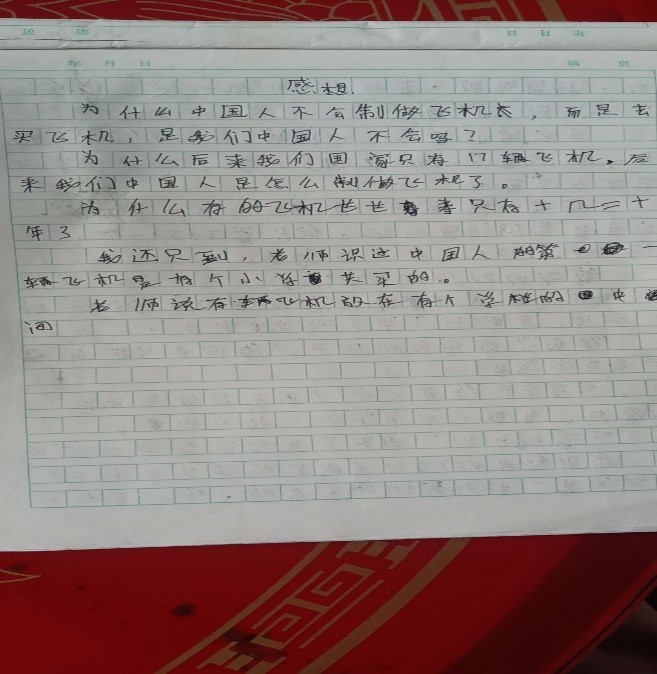 年 月 日
感想.
为什么中国人不会制做飞机长，而是去
买飞机，是我们中国人不会吗？
为什么后来我们国家只有17辆飞机，后
来我们中国人是怎么制做飞机了。
为什么有的飞机 只有十几二十
年了
我还只到，老师说这中国人的第一
辆飞机是有个小学 买的。
老师说有辆飞机放在有个学校的中
间